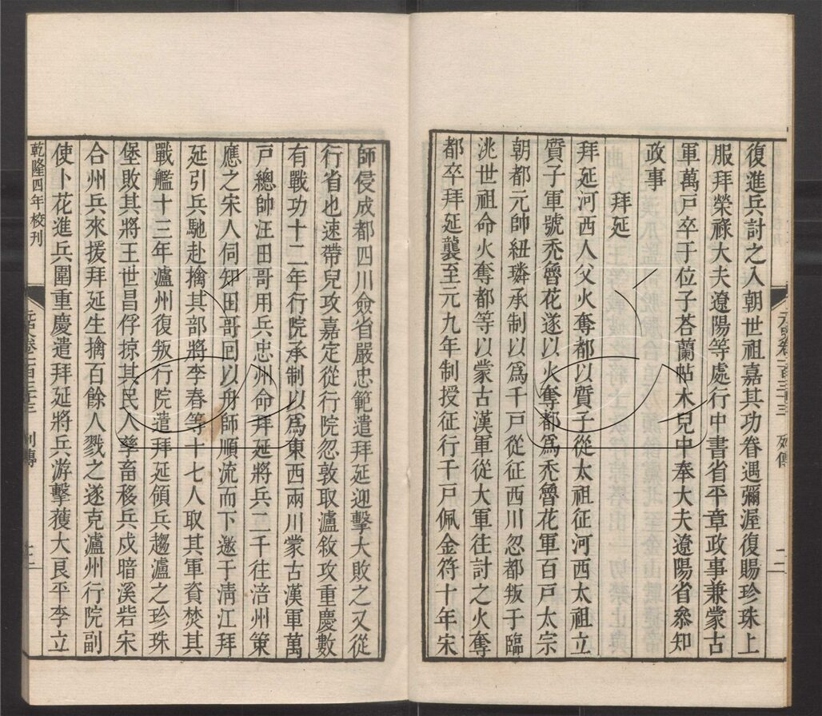 復進兵討之入朝世祖嘉其功眷遇彌渥復賜珍珠上
服拜榮祿大夫遼陽等處行中書省平章政事兼蒙古
軍萬戸卒于位子荅蘭帖木兒中奉大夫遼陽省叅知
政事
拜延
拜延河西人父火奪都以質子從太祖征河西太祖立
質子軍號禿魯花遂以火奪都爲禿魯花軍百戸太宗
朝都元帥紐璘承制以爲千戸從征西川忽都叛于臨
洮世祖命火奪都等以蒙古漢軍從大軍往討之火奪
都卒拜延襲至元九年制授征行千戸佩金符十年宋
元史卷一百三十三 列傳
師侵成都四川僉省嚴忠範遣拜延迎擊大敗之又從
行省也速帶兒攻嘉定從行院忽敦取瀘敘攻重慶數
有戰功十二年行院承制以爲東西兩川蒙古漢軍萬
戸總帥汪田哥用兵忠州命拜延將兵二千往涪州策
應之宋人伺知田哥回以舟師順流而下邀于清江拜
延引兵馳赴擒其部將李春等十七人取其軍資焚其
戰艦十三年瀘州復叛行院遣拜延領兵趨瀘之珍珠
堡敗其將王世昌俘掠其民人孳畜移兵戍暗溪砦宋
合州兵來援拜延生擒百餘人戮之遂克瀘州行院副
使卜花進兵圍重慶遣拜延將兵游擊獲大良平李立
乾隆四年校刊
元史卷一百三十三 列傳